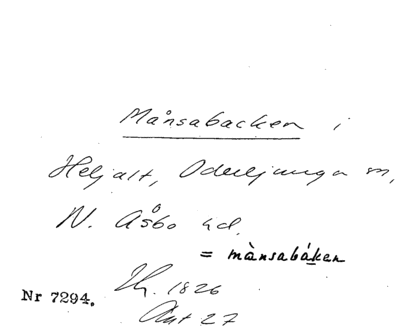 Månsabacken i
Heljalt, Oderljunga sn,
N. Åsbo hd.
= mànsabáken
Nr 7294. 1826
27